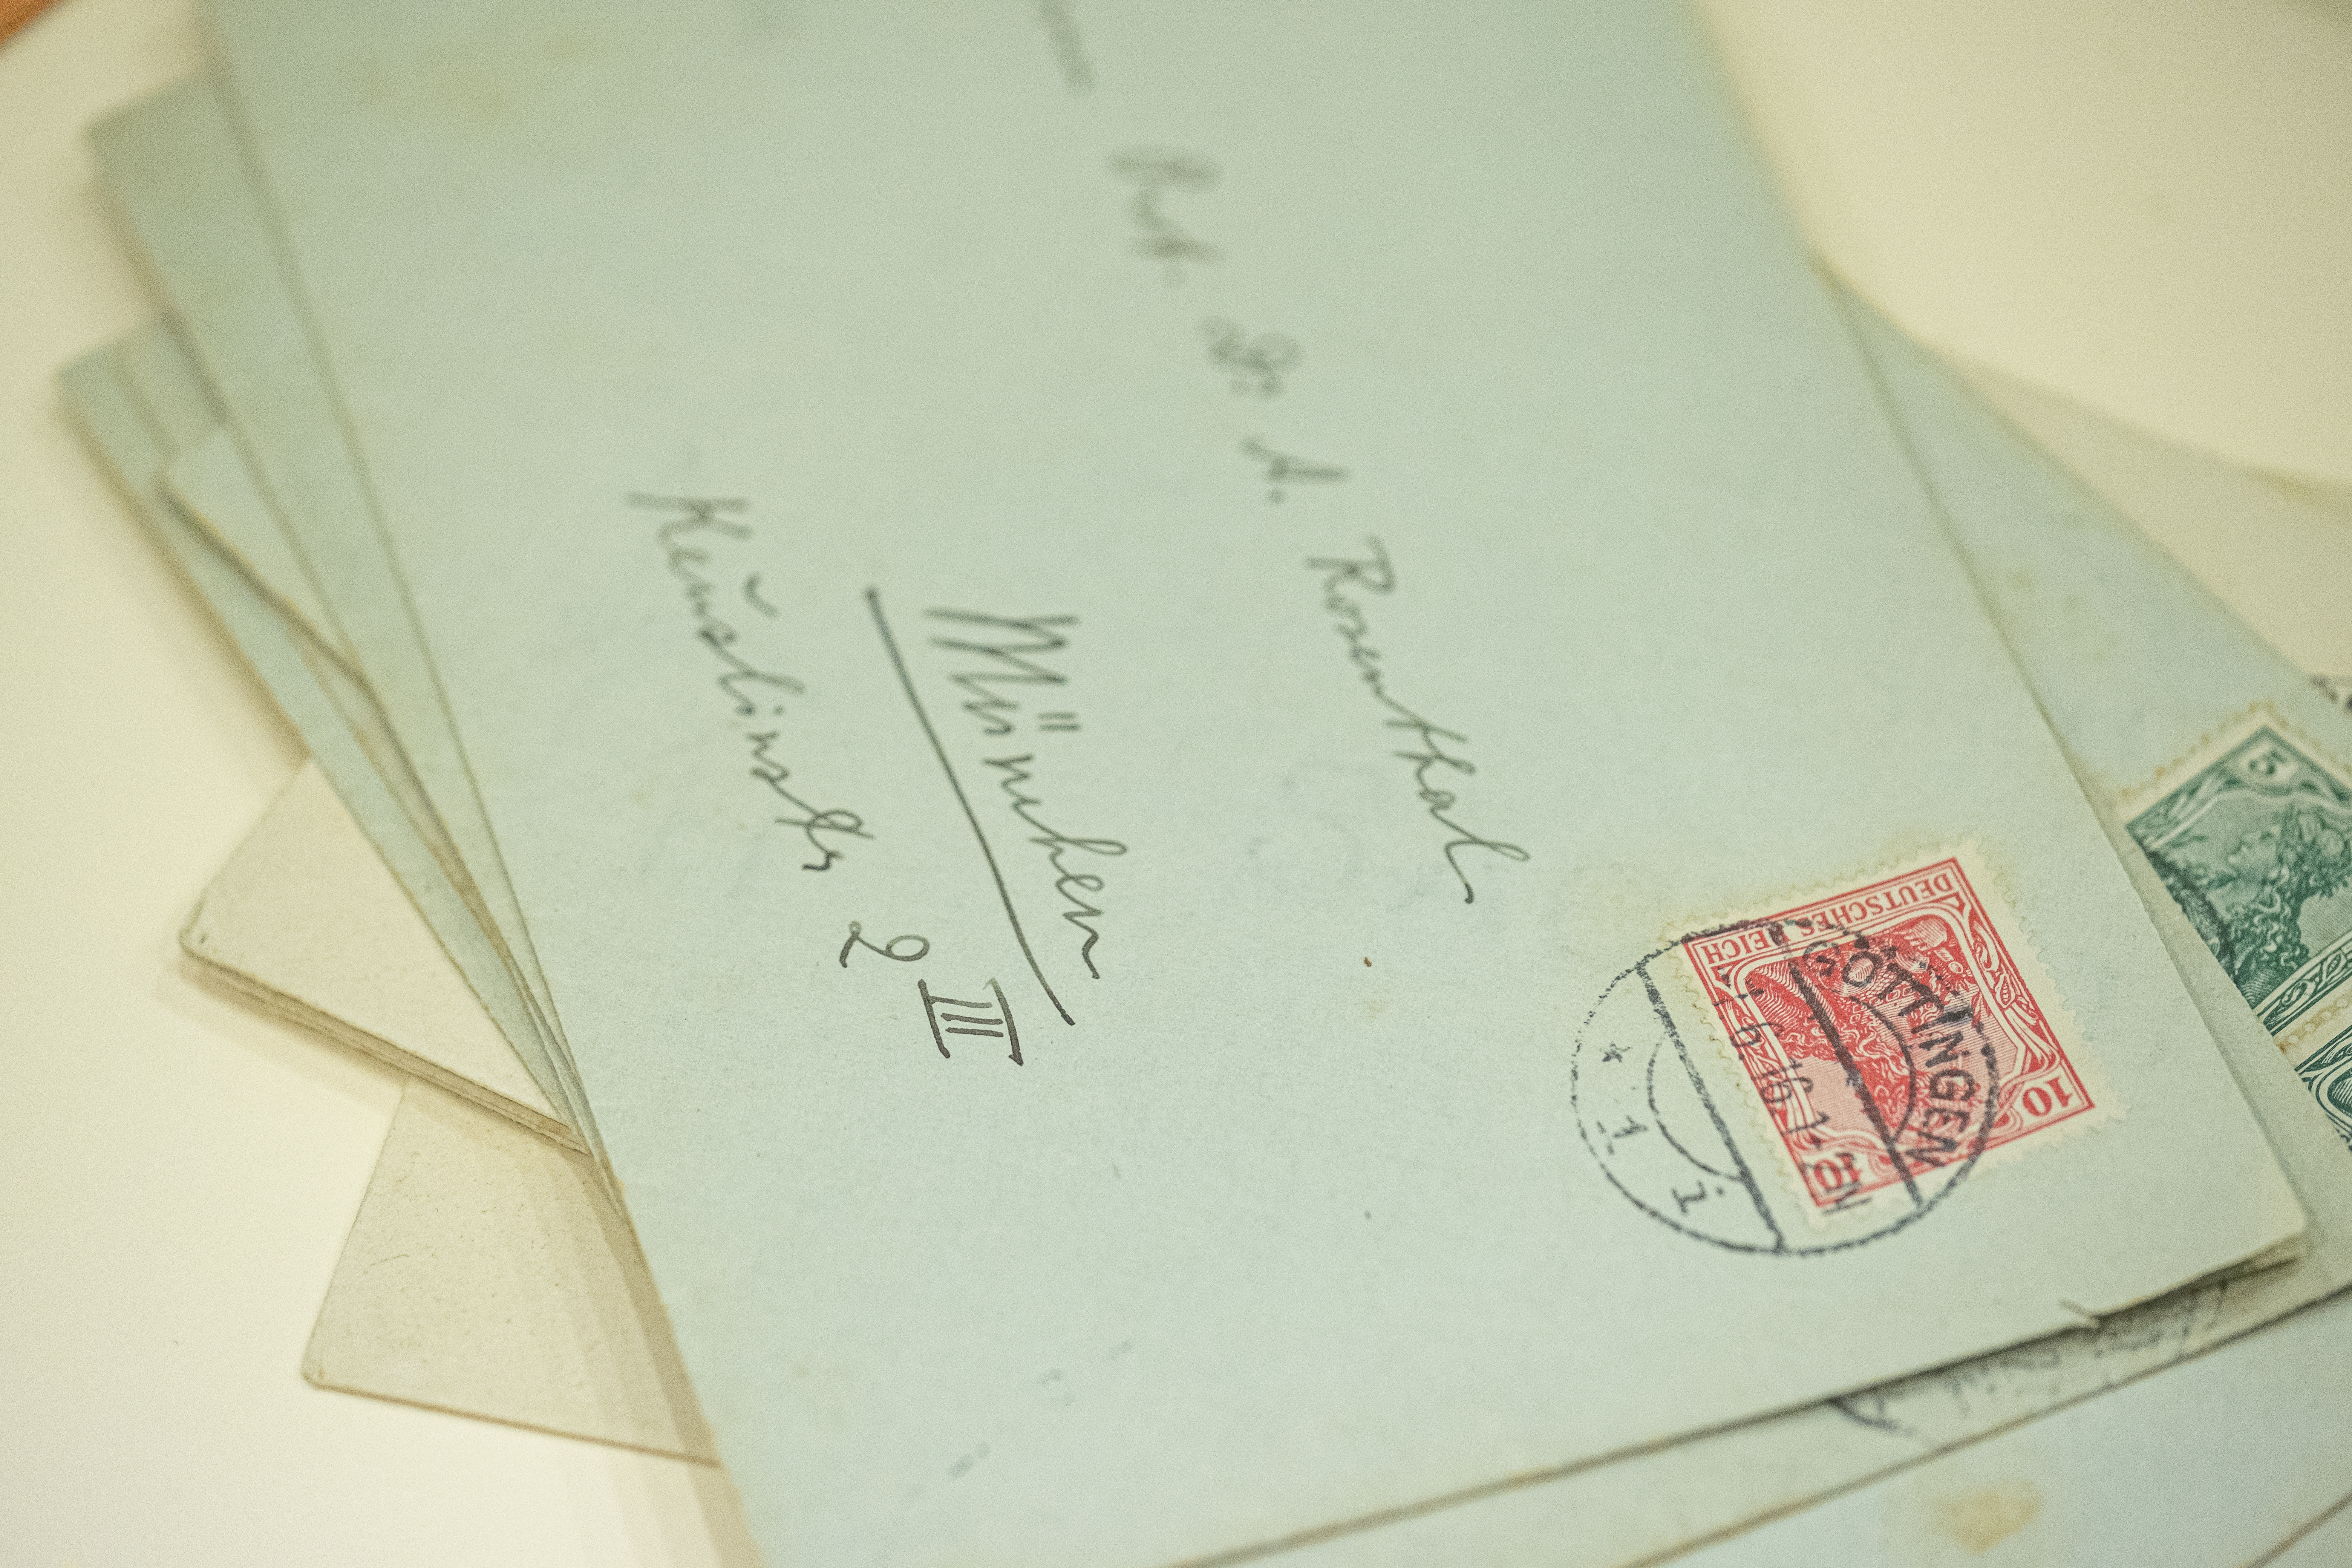 Prof. Dr. A. Rosenthal
München
Keuslinstr 2 III
DEUTSCHES REICH
10 10
GÖTTINGEN
* 1 i
5